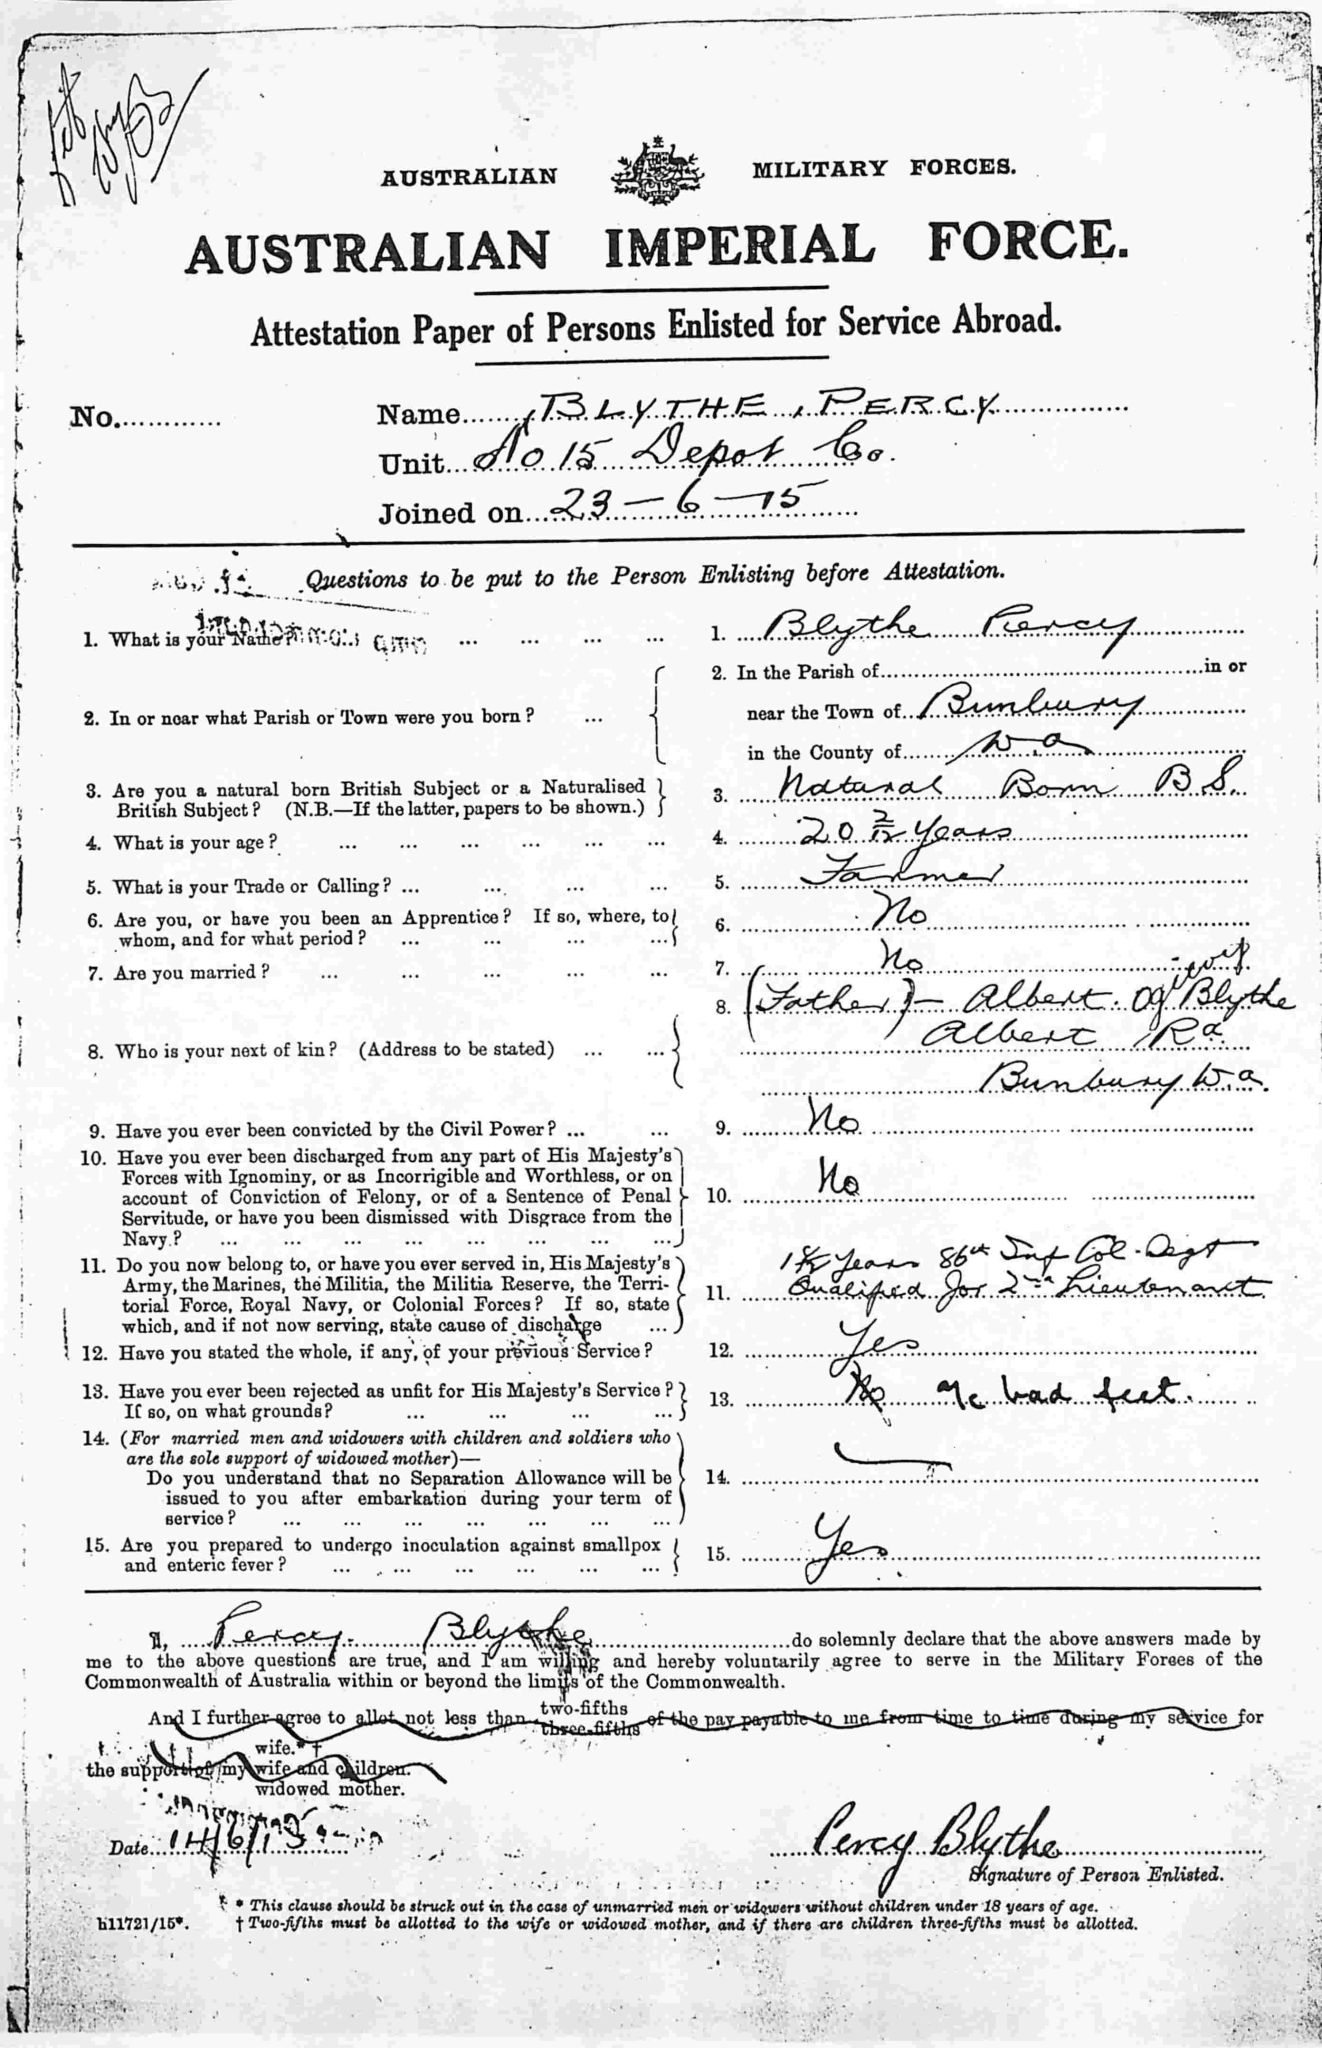 AUSTRALIAN MILITARY FORCES.
AUSTRALIAN IMPERIAL FORCE.
Attestation Paper of Persons Enlisted for Service Abroad.
No............ Name BLYTHE, PERCY
Unit No 15 Depot Co.
Joined on 23-6-15
Questions to be put to the Person Enlisting before Attestation.
1. What is your Name? ... ... ... ... 1. Blythe Percy
2. In the Parish of in or
2. In or near what Parish or Town were you born? ... near the Town of Bunbury
in the County of W.a
3. Are you a natural born British Subject or a Naturalised
British Subject? (N.B.—If the latter, papers to be shown.) 3. Natural Born B.S.
4. What is your age? ... ... ... ... ... ... 4. 20 2/12 years
5. What is your Trade or Calling? ... ... ... ... 5. Farmer
6. Are you, or have you been an Apprentice? If so, where, to
whom, and for what period? ... ... ... ... 6. No
7. Are you married? ... ... ... ... ... 7. No
8. (Father) - Albert Blythe
Albert Rd
8. Who is your next of kin? (Address to be stated) ... ...
Bunbury W.a.
9. Have you ever been convicted by the Civil Power? ... ... 9. No
10. Have you ever been discharged from any part of His Majesty's
Forces with Ignominy, or as Incorrigible and Worthless, or on
account of Conviction of Felony, or of a Sentence of Penal 10. No
Servitude, or have you been dismissed with Disgrace from the
Navy? ... ... ... ... ... ... ... ...
11. Do you now belong to, or have you ever served in, His Majesty's years 86th Inf
Army, the Marines, the Militia, the Militia Reserve, the Terri-
torial Force, Royal Navy, or Colonial Forces? If so, state 11. Qualified for 2nd Lieutenant
which, and if not now serving, state cause of discharge ...
12. Have you stated the whole, if any, of your previous Service? 12. Yes
13. Have you ever been rejected as unfit for His Majesty's Service?
If so, on what grounds? ... ... ... ... 13. No bad feet.
14. (For married men and widowers with children and soldiers who
are the sole support of widowed mother)—
Do you understand that no Separation Allowance will be 14.
issued to you after embarkation during your term of
service? ... ... ... ... ... ... ...
15. Are you prepared to undergo inoculation against smallpox
and enteric fever? ... ... ... ... ... ... 15. Yes
I, Percy Blythe do solemnly declare that the above answers made by
me to the above questions are true, and I am willing and hereby voluntarily agree to serve in the Military Forces of the
Commonwealth of Australia within or beyond the limits of the Commonwealth.
two-fifths
And I further agree to allot not less than three-fifths of the pay payable to me from time to time during my service for
wife.* †
the support of my wife and children.
widowed mother.
Date 14/6/15
Percy Blythe
Signature of Person Enlisted.
* This clause should be struck out in the case of unmarried men or widowers without children under 18 years of age.
h11721/15*. † Two-fifths must be allotted to the wife or widowed mother, and if there are children three-fifths must be allotted.